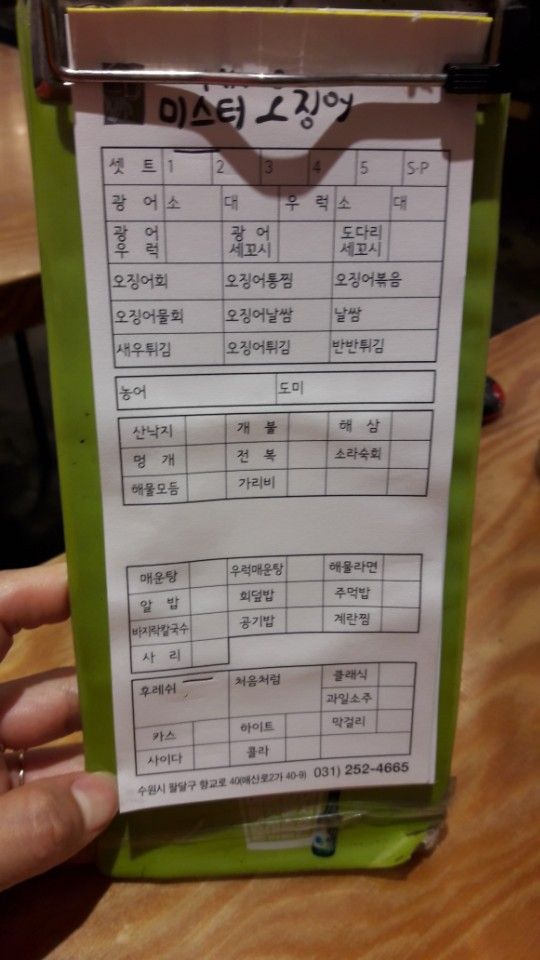 미스터 오징어
셋 트 1 2 3 4 5 S-P
광 어 소 대 우 럭 소 대
광 어 우 럭 광 어 세꼬시 도다리 세꼬시
오징어회 오징어통찜 오징어볶음
오징어물회 오징어날쌈 날쌈
새우튀김 오징어튀김 반반튀김
농어 도미
산낙지 개 불 해 삼
멍 개 전 복 소라숙회
해물모듬 가리비
매운탕 우럭매운탕 해물라면
알 밥 회덮밥 주먹밥
바지락칼국수 공기밥 계란찜
사 리
후레쉬 처음처럼 클래식
과일소주
카스 하이트 막걸리
사이다 콜라
수원시 팔달구 향교로 40(매산로2가 40-9) 031) 252-4665